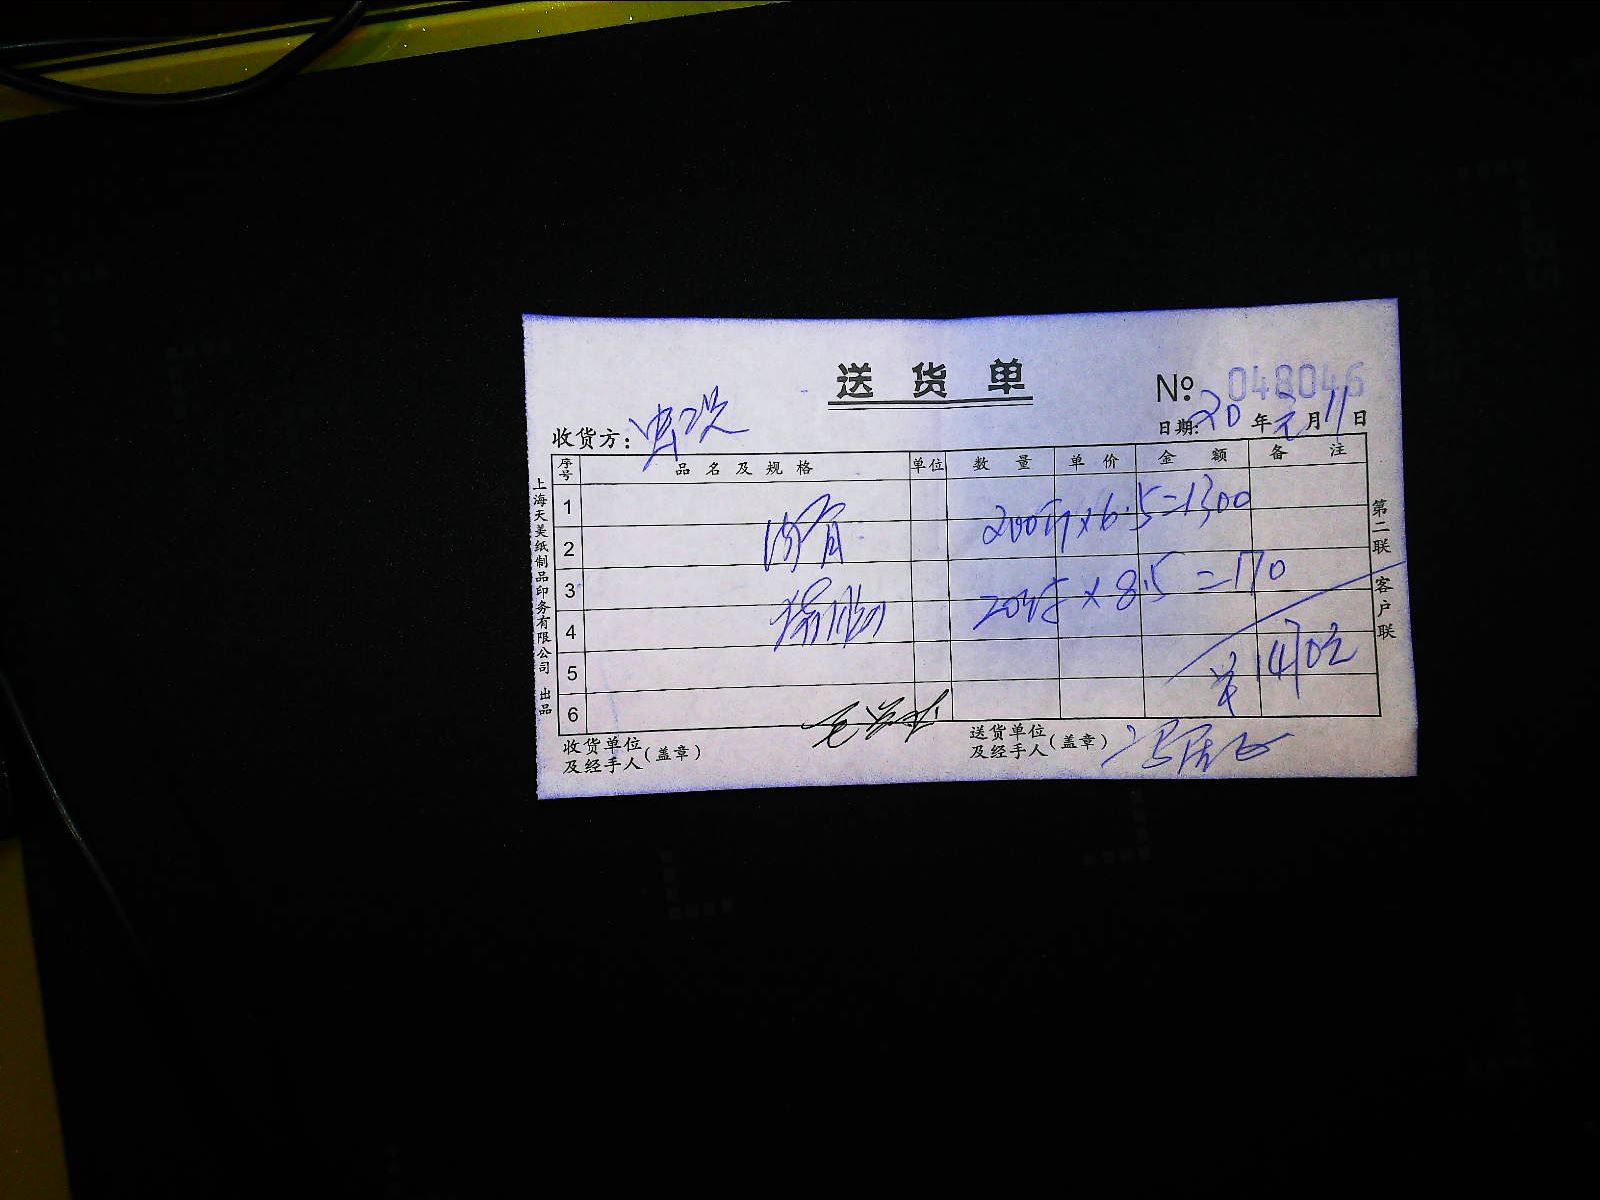 送货单
№ 048046
收货方:
日期: 20 年 元 月 11 日
序号 品名及规格 单位 数量 单价 金额 备注
1
2 200斤×6.5=1300
3
4 20斤×8.5=170
5
6 1470元
收货单位及经手人(盖章)
送货单位及经手人(盖章)
上海天美纸制品印务有限公司 出品
第二联 客户联